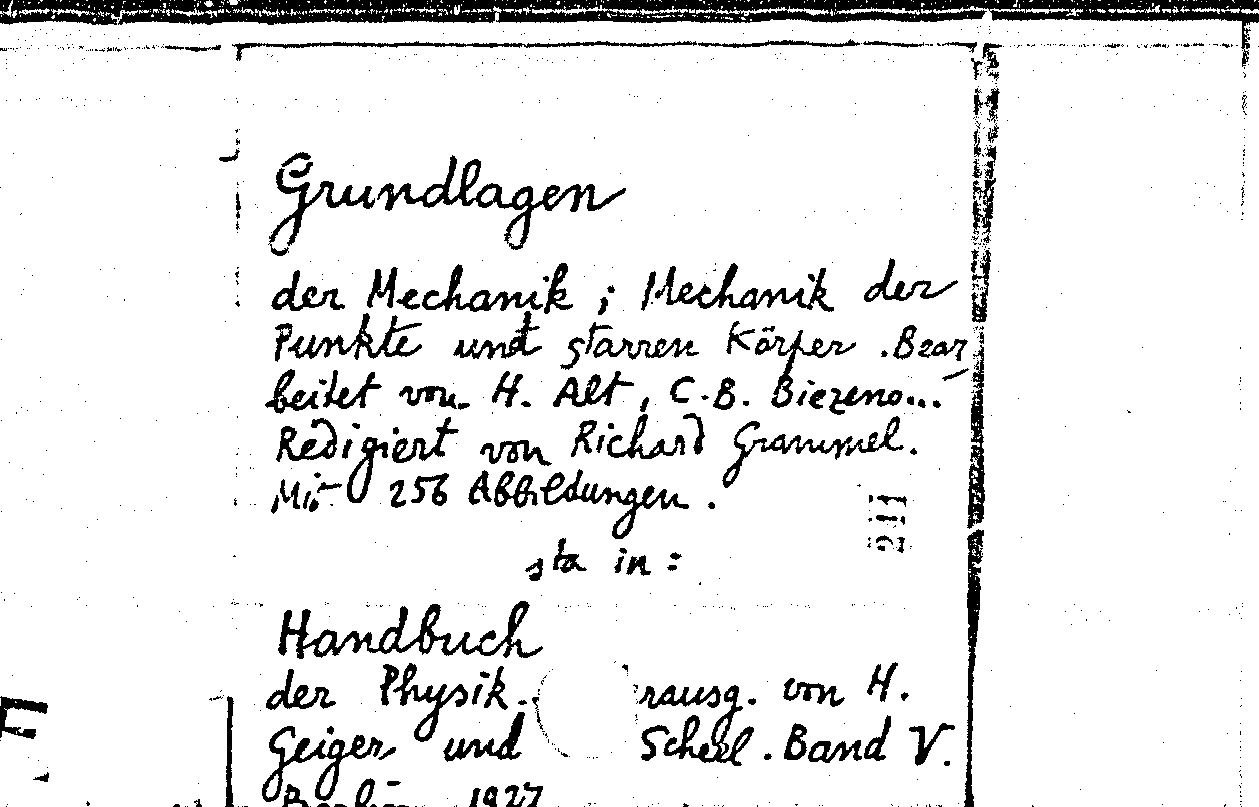 Grundlagen
der Mechanik ; Mechanik der
Punkte und starren Körper . Bear
beitet von H. Alt, C.B. Biezeno...
Redigiert von Richard Grammel.
Mit 256 Abbildungen .
211
sta in :
Handbuch
der Physik. rausg. von H.
Geiger und Scheel . Band V.
Berlin 1927